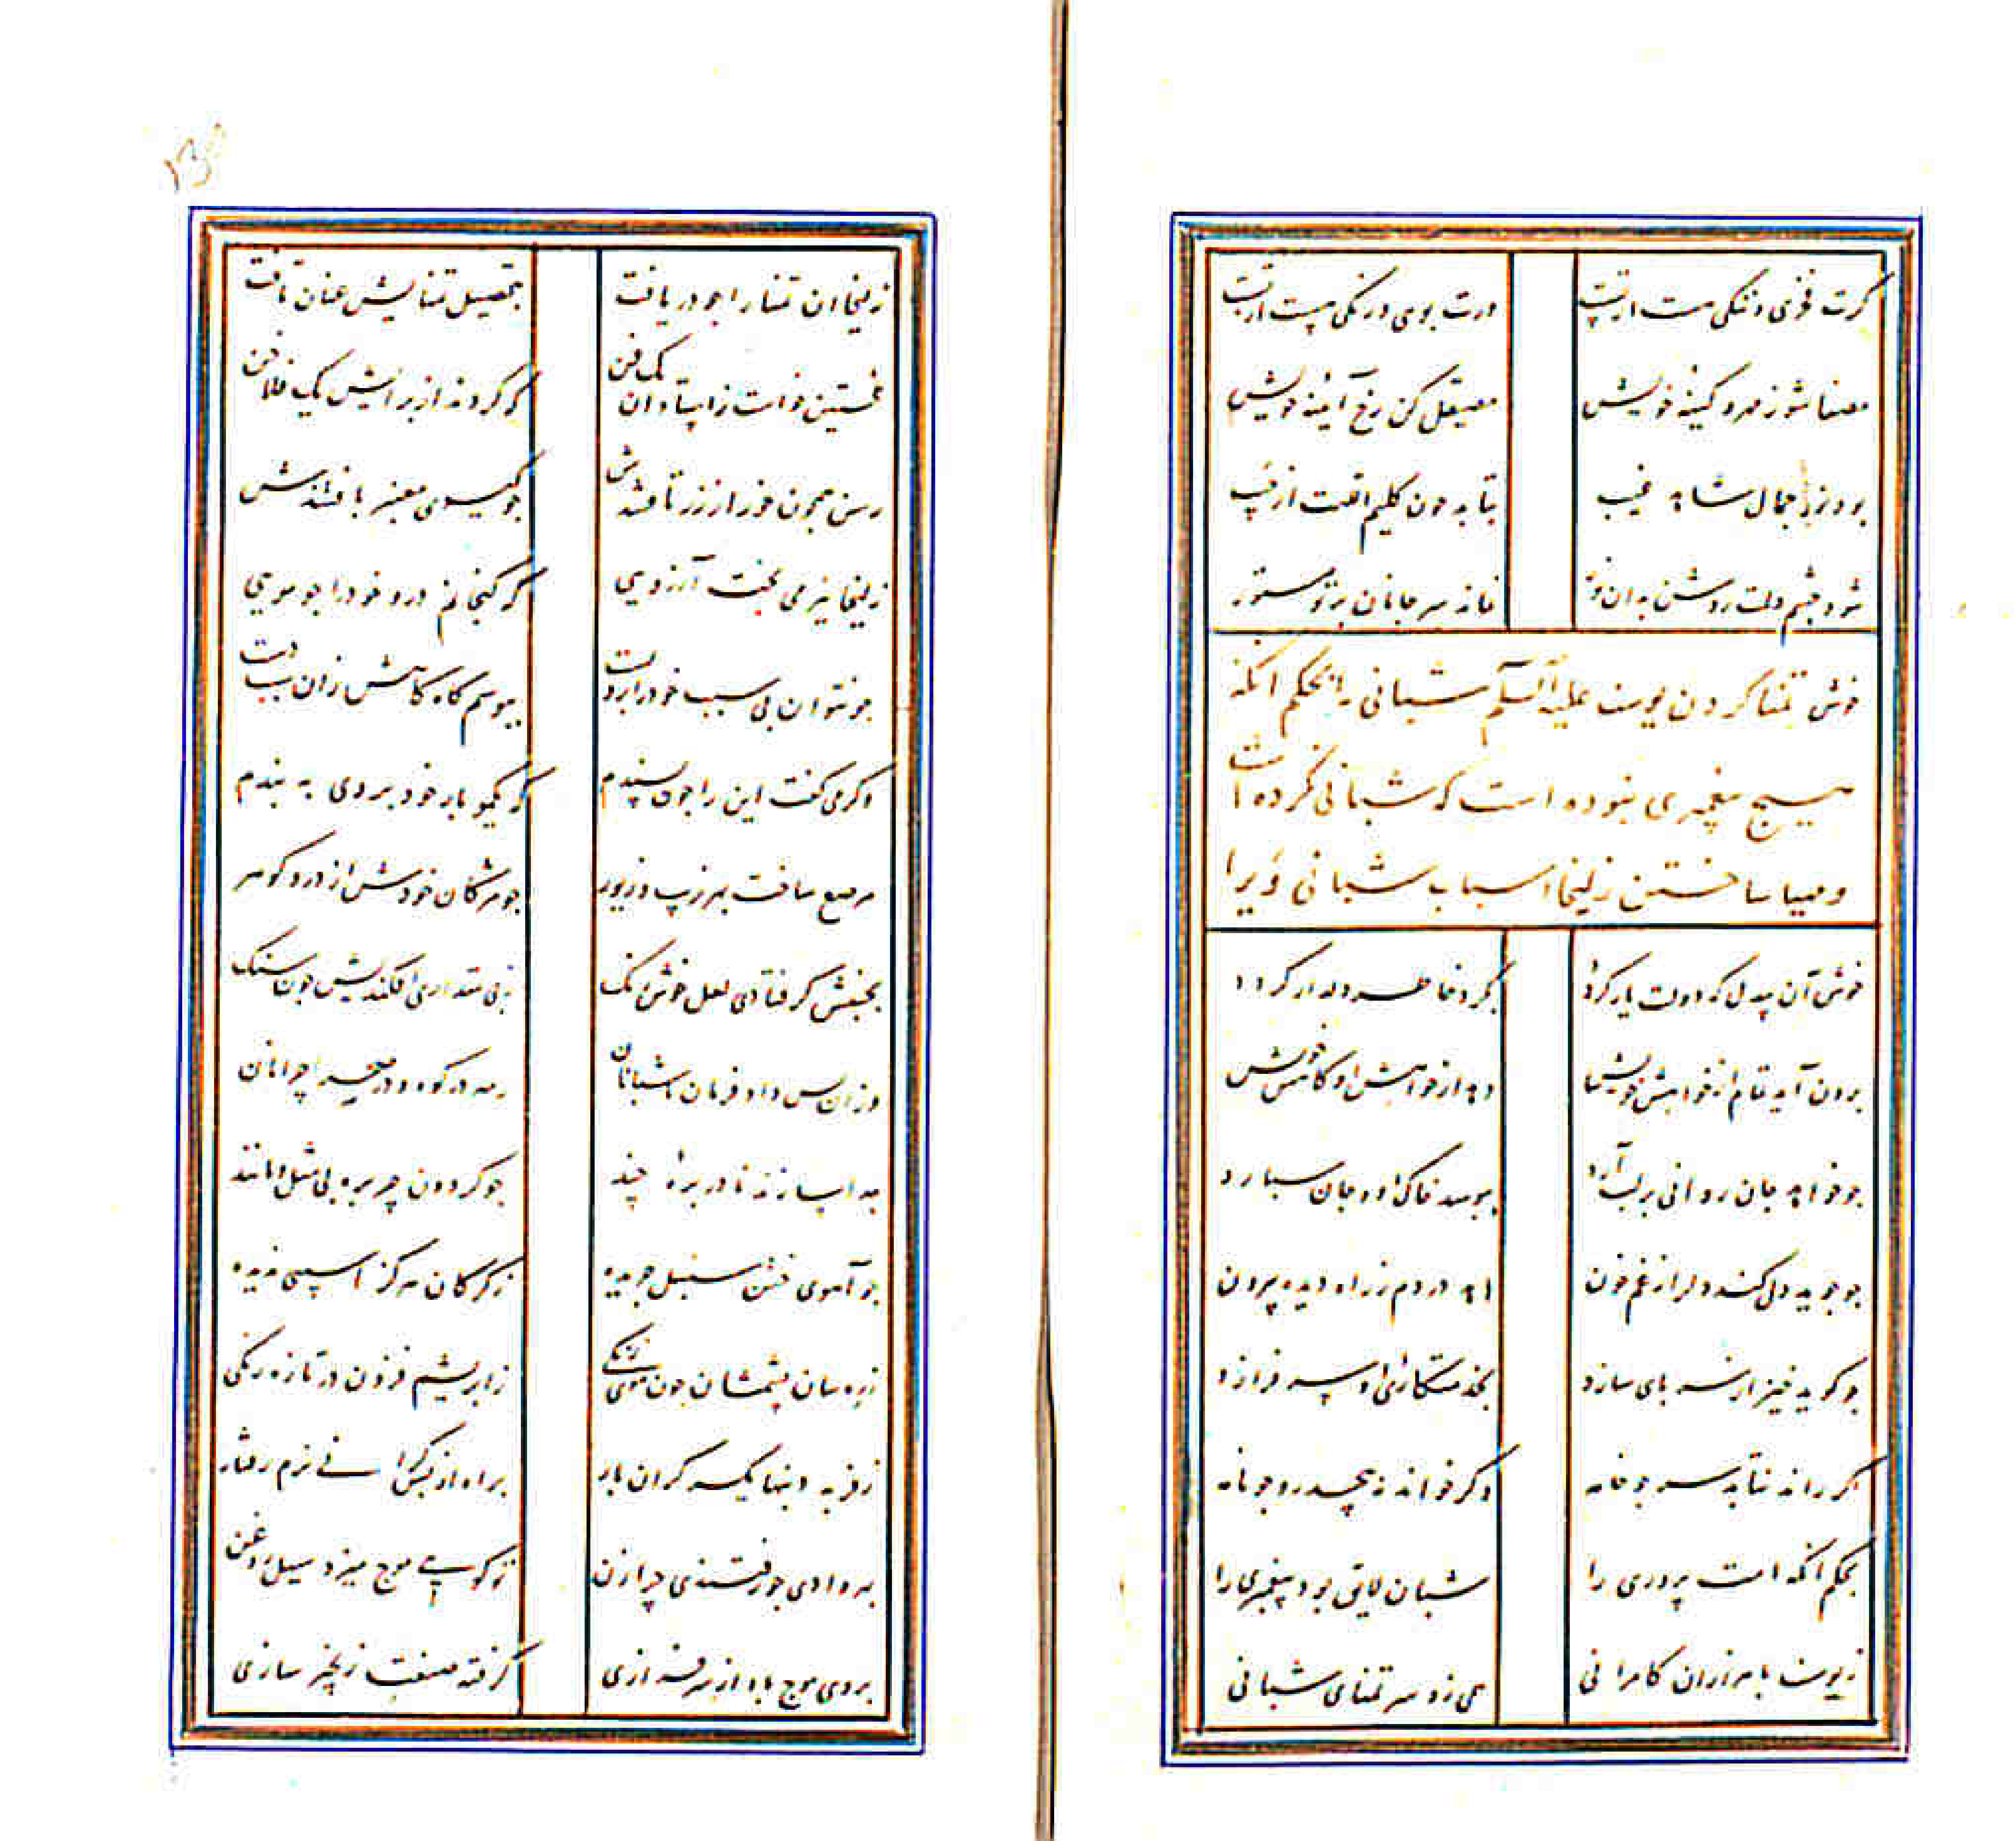 گرت فخری و ننکی هست ازتست ورت بوی و رنکی هست ازتست
مصفا شو ز مهر و کینهٔ خویش مصیقل کن رخ آیینهٔ خویش
بود نور جمال شاهد غیب بتابد چون کلیم اللهت از جیب
شود چشم دلت روشن بدان نور نماند سر جانان بر تو مستور
خوش تمنا کردن یوسف علیه السلم شبانی را بحکم آنکه
هیچ پیغمبری نبوده است که شبانی نکرده است
و مهیا ساختن زلیخا اسباب شبانی ویرا
خوش آن بیدل که دولت یار کردد بکرد خاطر دلدار کردد
برون آید تمام از خواهش خویش دهد از خواهش او کاهش خویش
جو خواهد جان روانی بر لب آرد ببوسد خاک او و جان سبارد
جو جوید دل کند دلرا ز غم خون دهد در دم ز راه دیده بیرون
جو کوید خیز از سر بای سازد بخدمتکاری او سر فرازد
اکر راند نتابد سر جو خامه وکر خواند نبیچد رو جو نامه
بحکم آنکه امت پروری را شبان لایق بود پیغمبری را
زیوسف با هزاران کامرانی همی زد سر تمنای شبانی
زلیخا ان تمنا را جو دریافت بتحصیل تمنایش عنان تافت
نخستین خواست ز استادان یک فن که کردند از برایش یک فلاخن
رسن همچون خور از زر تافتندش جو کیسوی معنبر بافتندش
زلیخا نیز می بخت آرزویی که کنجانم درو خود را جو مویی
جو نتوان بی سبب خود را برو بست ببوسم کاه کاهش زان سبب دست
دکر می کفت این را چون بسندم که یکمو بار خود بروی به بندم
مرصع ساخت بهر زیب و زیور جو مژکان خودش از در و کوهر
بجنبش کر فتادی لعل خوش رنک به بی مقداری افکندیش چون سنک
وزان بس داد فرمان تا شبانان رمه در کوه و در صحرا چرانان
جدا سازند نادر برهٔ چند جو کردون چر بره بی مثل و مانند
جو آهوی ختن سنبل چریده ز کرکان هرکز اسیبی ندیده
زره سان پشمشان چون موی زنکی ز ابریشم فزون در تازه رنکی
ز فربه دنبها یکسر کران بار براه از بس کرانی نرم رفتار
بهر وادی جو رفتندی چرازن تو کویی موج میزد سیل روغن
بروی موج باد از سرفرازی کرفته صنعت زنجیر سازی